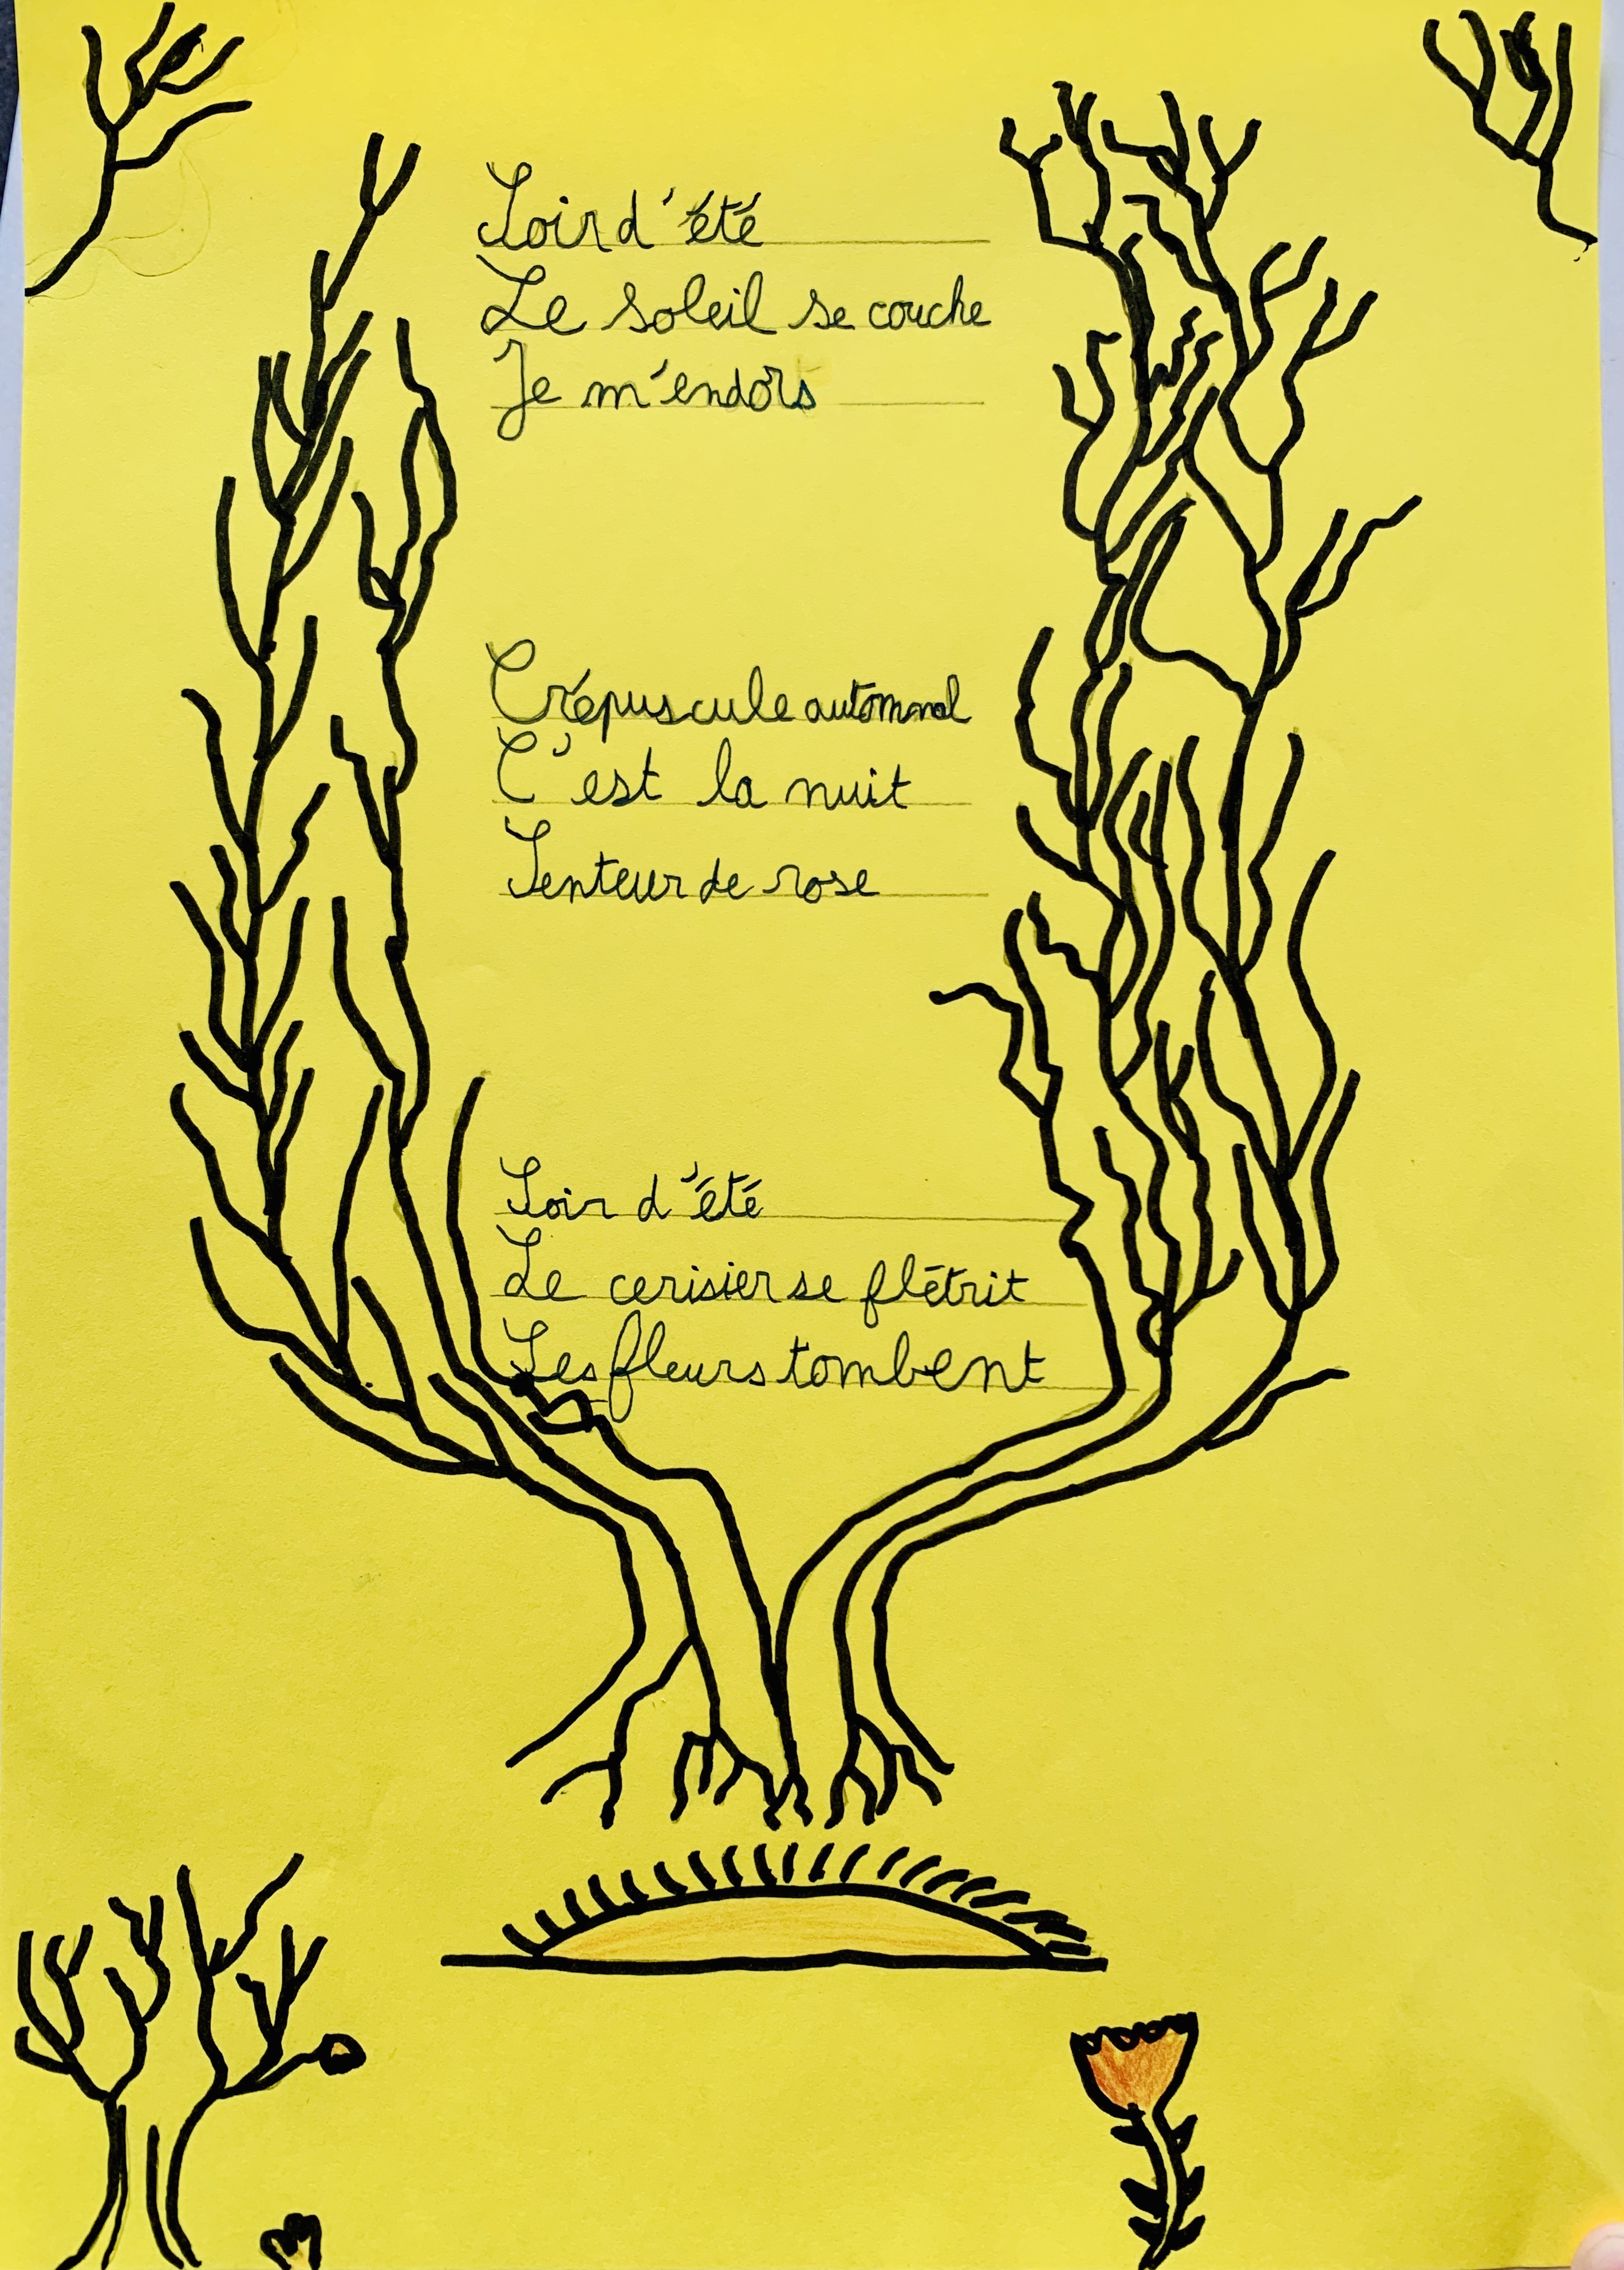 Soir d'été
Le soleil se couche
Je m'endors
Crépuscule automnal
C'est la nuit
Senteur de rose
Soir d'été
Le cerisier se flétrit
Les fleurs tombent